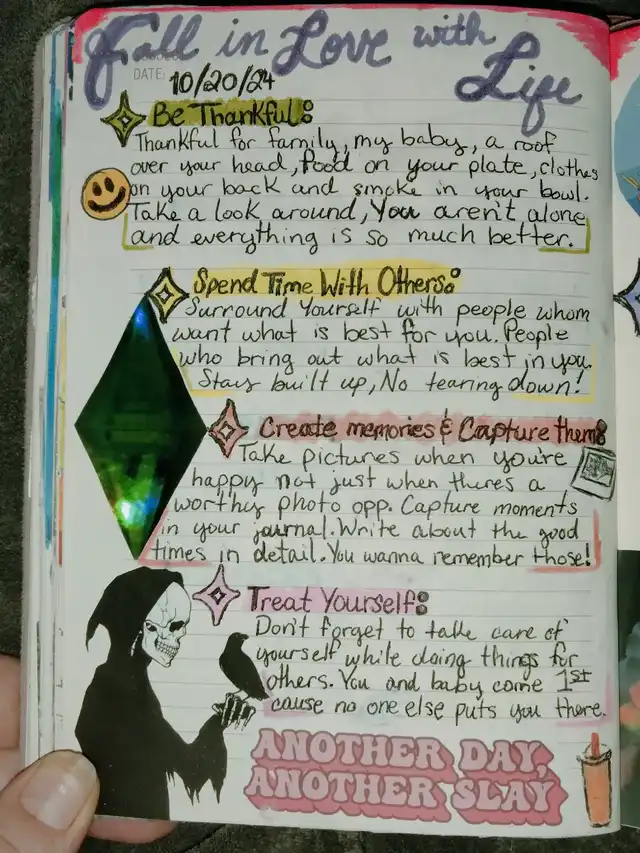 Fall in Love with
Life
DATE: 10/20/24
Be Thankful:
Thankful for family, my baby, a roof
over your head, food on your plate, clothes
on your back and smoke in your bowl.
Take a look around, You aren't alone
and everything is so much better.
Spend Time With Others:
Surround Yourself with people whom
want what is best for you. People
who bring out what is best in you.
Stay built up, No tearing down!
Create memories & Capture them:
Take pictures when you're
happy not just when theres a
worthy photo opp. Capture moments
in your journal. Write about the good
times in detail. You wanna remember those!
Treat Yourself:
Don't forget to take care of
yourself while doing things for
others. You and baby come 1st
cause no one else puts you there.
ANOTHER DAY,
ANOTHER SLAY